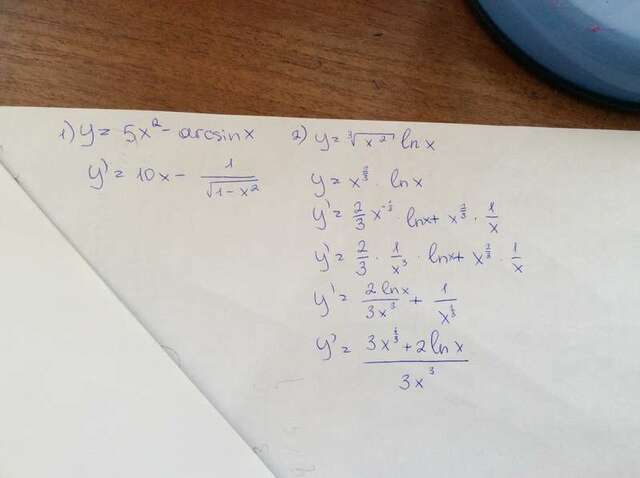 1) y = 5x² - arcsinx
y' = 10x - 1/√(1-x²)
2) y = ∛(x²) lnx
y = x^(2/3) · lnx
y' = 2/3 x^(-1/3) · lnx + x^(2/3) · 1/x
y' = 2/3 · 1/x³ · lnx + x^(2/3) · 1/x
y' = 2lnx/3x³ + 1/x^(1/3)
y' = (3x^(1/3) + 2lnx)/3x³